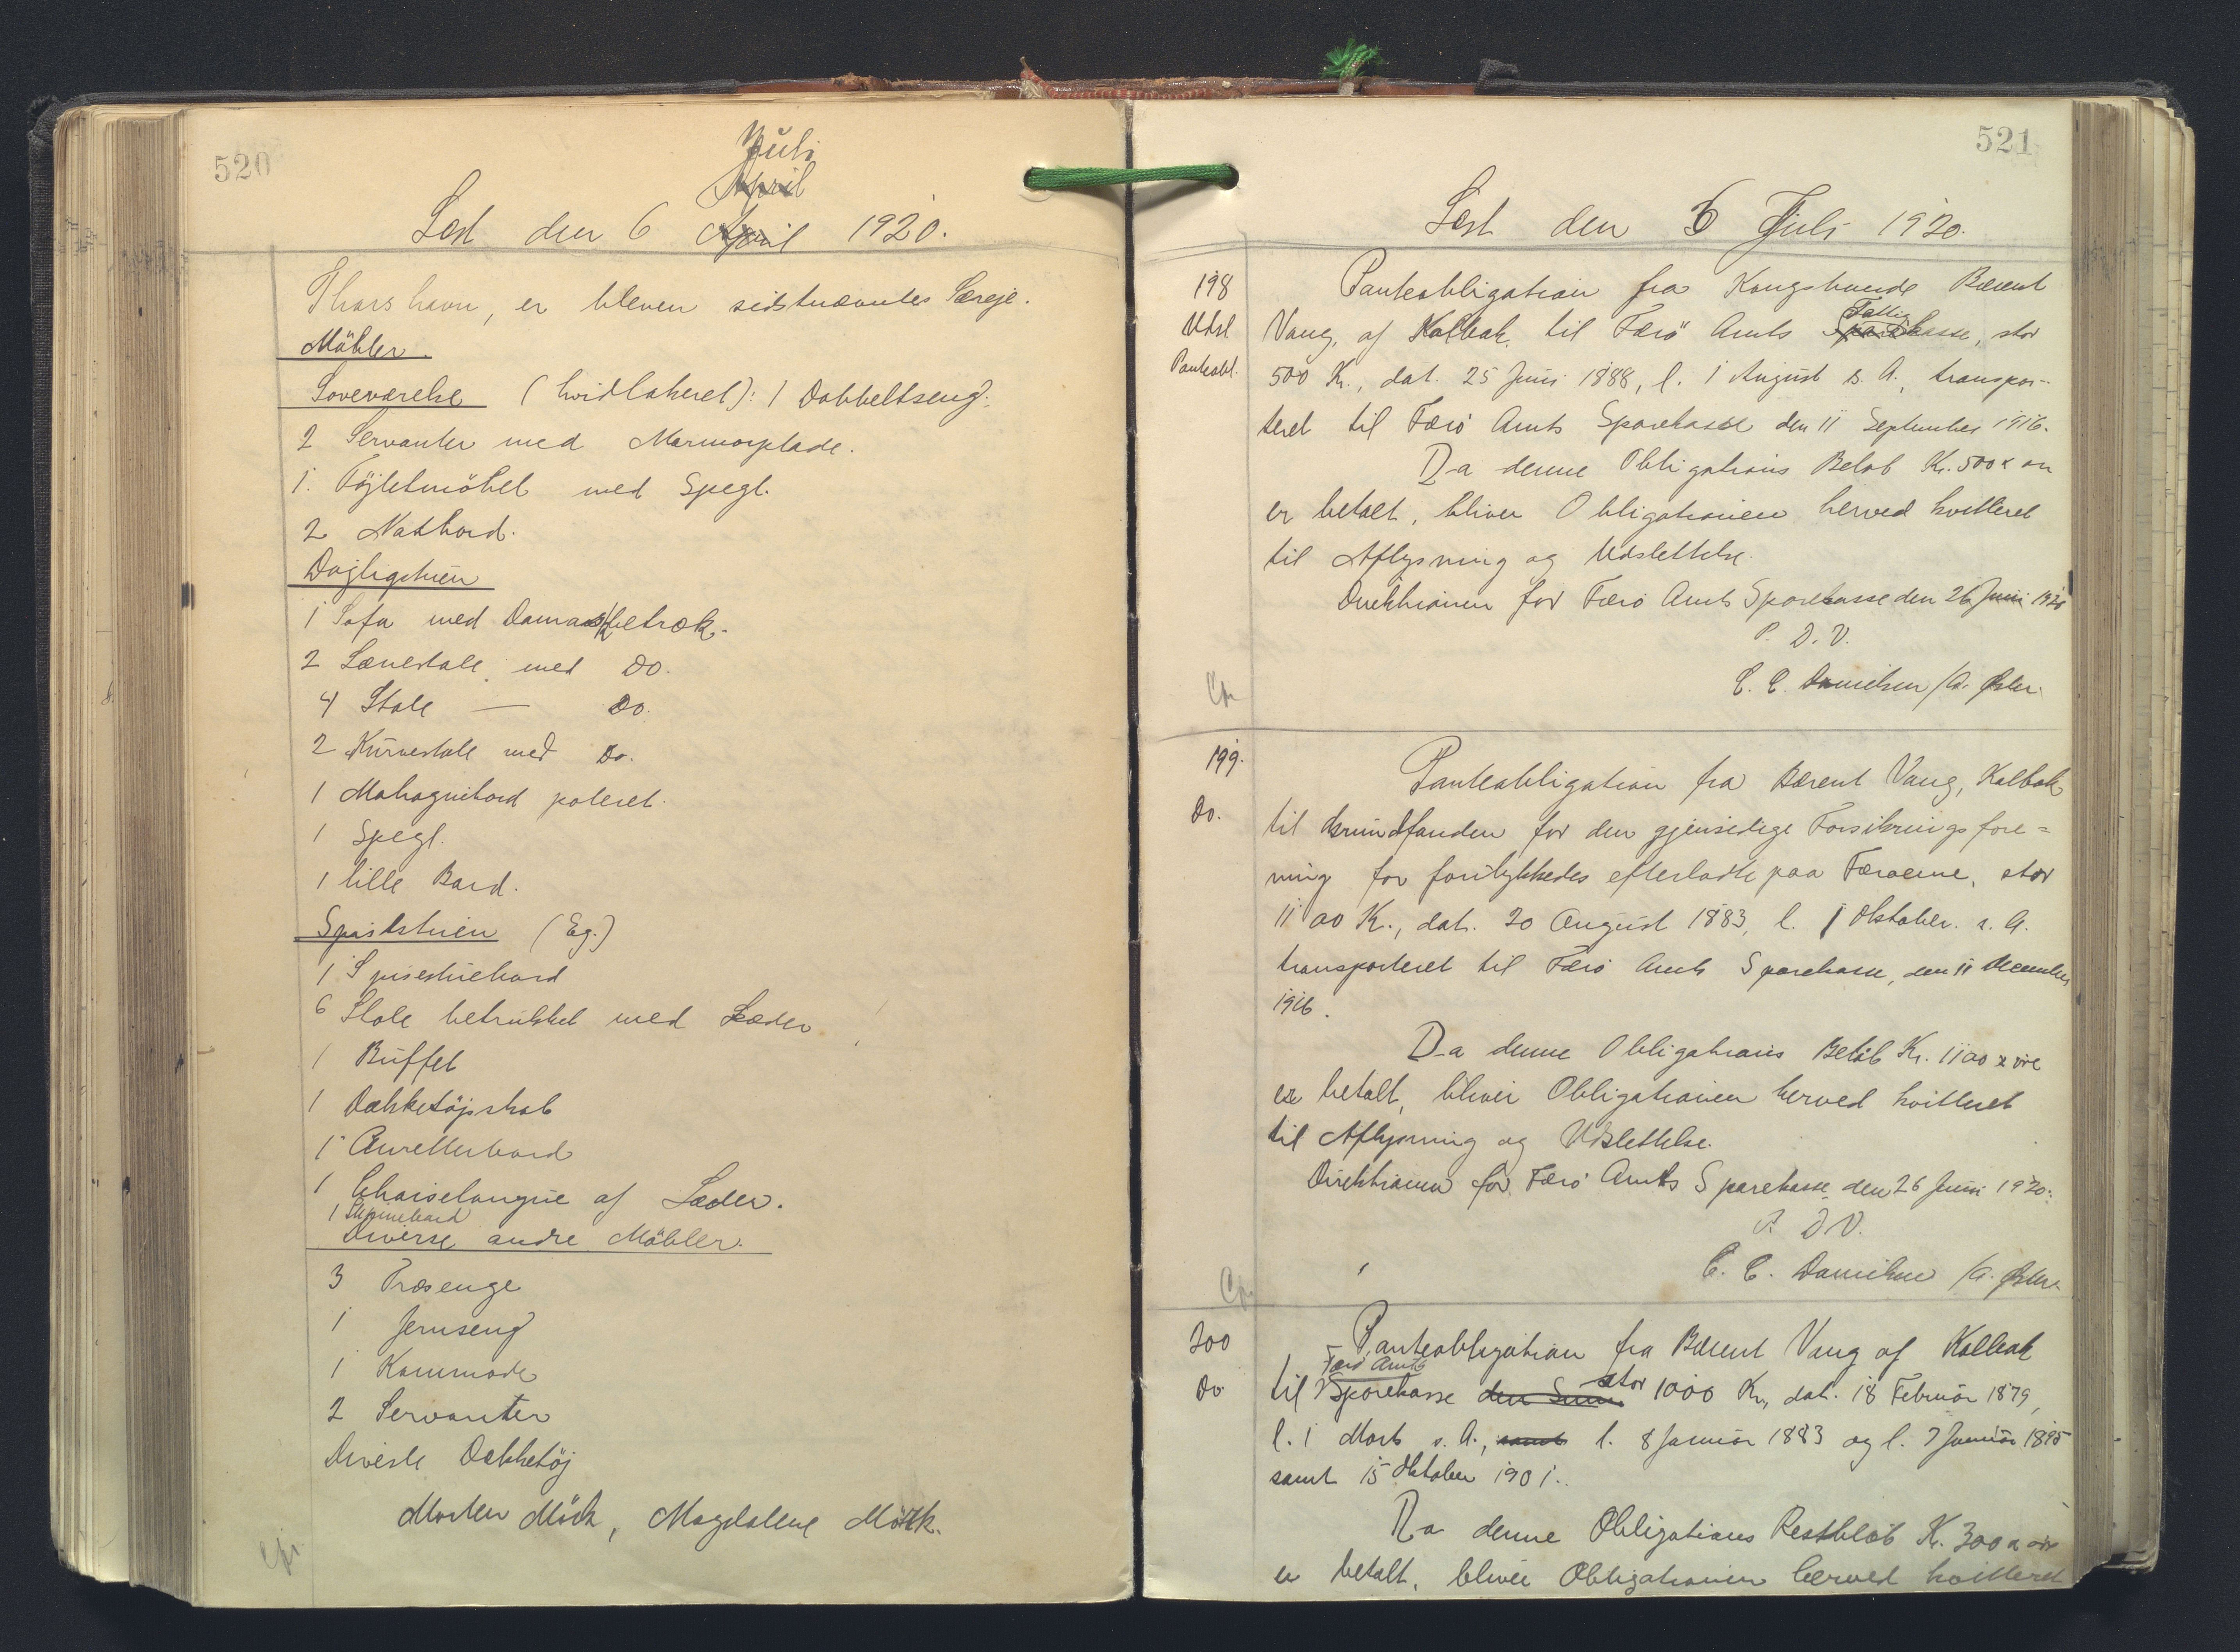 520
Juli
April
Læst den 6 April 1920.
Thorshavn, er bleven sidstnævntes Særeje.
Möbler.
Soveværelse (hvidlakeret): 1 Dobbeltseng.
2 Servanter med Marmorplade.
1. Töjletmöbel med Spegl.
2 Natbord.
Dagligstuen
1 Sofa med Damaskbetræk.
2 Lænestole med Do.
4 Stole — Do.
2 Kurvestole med Do.
1 Mahognibord poleret.
1 Spegl.
1 lille Bord.
Spisestuen (Eg.)
1 Spisestuebord
6 Stole betrukket med Læder
1 Buffet
1 Dækketöjsskab
1 Anretterbord
1 Chaiselongue af Læder.
1
Diverse andre Möbler.
3 Træsenge
1 Jernseng
1 Kommode
2 Servanter
Diverse Dækketöj
Morten Mörk, Magdalene Mörk.
521
Læst den 6 Juli 1920.
198
Udsl.
Panteobl.
Panteobligation fra Kongsbonde Berent
Vang, af Kalbak, til Færö Amts Fattigkasse, stor
500 Kr., dat. 25 Juni 1888, l. 1 August s. A., transpor-
teret til Færö Amts Sparekasse den 11 September 1916.
Da denne Obligations Belöb Kr. 500 x ør
er betalt, bliver Obligationen herved kvitteret
til Aflysning og Udslettelse.
Direktionen for Færö Amts Sparekasse den 26 Juni 1920
P. D. V.
C. C. Danielsen /A.
199.
Do.
Panteobligation fra Berent Vang, Kalbak
til Grundfonden for den gjensidige Forsikringsfore=
ning for forulykkedes efterladte paa Færøerne, stor
1100 Kr., dat. 20 August 1883, l. 1 Oktober s. A.
transporteret til Færö Amts Sparekasse, den 11 December
1916.
Da denne Obligations Belöb Kr. 1100 x øre
er betalt, bliver Obligationen herved kvitteret
til Aflysning og Udslettelse.
Direktionen for Færö Amts Sparekasse den 26 Juni 1920.
P. D. V.
C. C. Danielsen /A.
200
Do.
Panteobligation fra Berent Vang af Kalbak
til Færö Amts Sparekasse stor 1000 Kr., dat. 18 Februar 1879,
l. 1 Marts s. A., samt l. 8 Januar 1883 og l. 7 Januar 1895
samt 15 Oktober 1901.
Da denne Obligations Restbelöb Kr. 300 x ør
er betalt, bliver Obligationen herved kvitteret